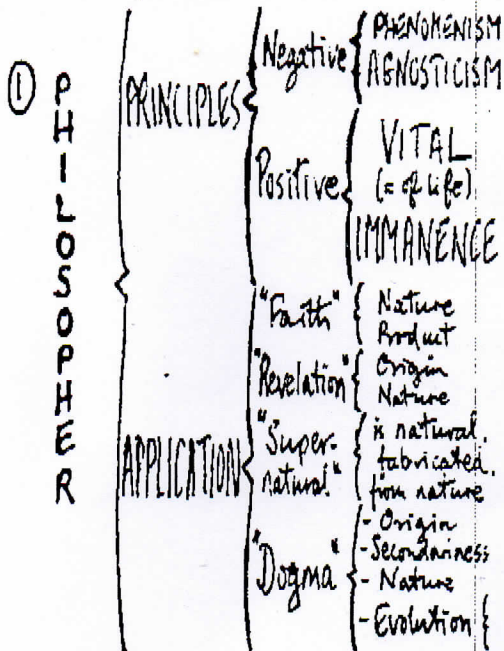 ① PHILOSOPHER
PRINCIPLES
Negative
PHENOMENISM
AGNOSTICISM
Positive
VITAL
(= of life)
IMMANENCE
APPLICATION
"Faith"
Nature
Product
"Revelation"
Origin
Nature
"Super-
natural"
is natural,
fabricated,
from nature
"Dogma"
- Origin
- Secondariness
- Nature
- Evolution {